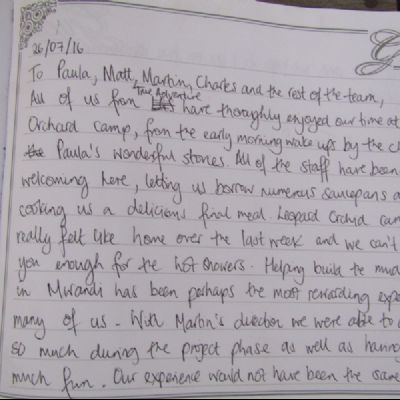 26/07/16
To Paula, Matt, Martin, Charles and the rest of the team,
All of us from True Adventure have thoroughly enjoyed our time at
Orchard camp, from the early morning wake ups by the
Paula's wonderful stories. All of the staff have been
welcoming here, letting us borrow numerous saucepans
cooking us a delicious final meal. Leopard Orchid
really felt like home over the last week and we can't
you enough for the hot showers. Helping build the
in Mwandi has been perhaps the most rewarding
many of us. With Martin's direction we were able to
so much during the project phase as well as having
much fun. Our experience would not have been the same